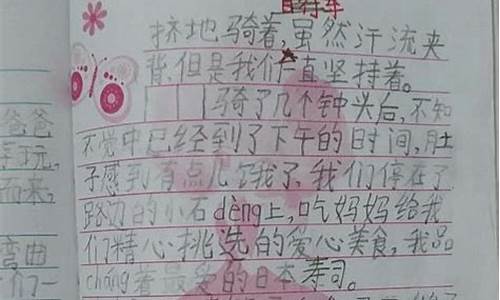 自行车
挤地骑着,虽然汗流夹
背,但是我们一直坚持着。
骑了几个钟头后,不知
不觉中已经到了下午的时间,肚
子感到有点儿饿了,我们停在了
路边的小石dèng上,吃妈妈给我
们精心挑选的爱心美食,我品
cháng着最爱的日本寿司。
爸爸
玩,
而来,
弯曲
们一